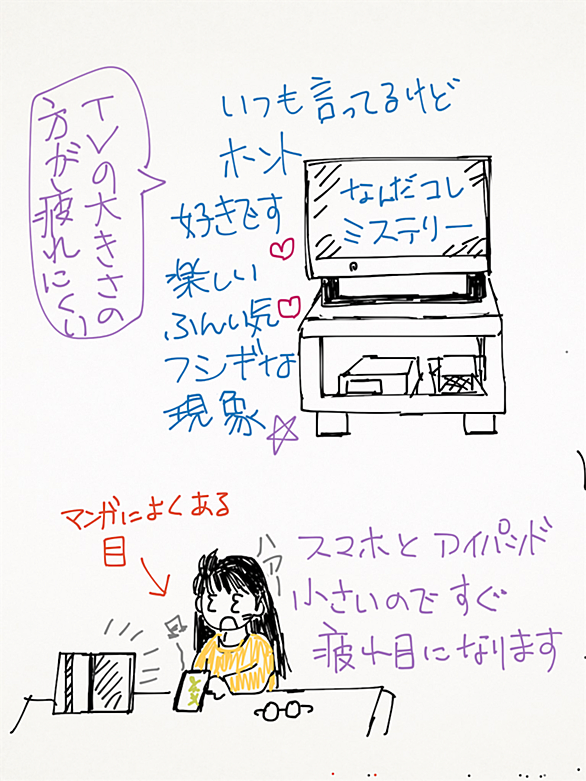 いつも言ってるけど
ホント
好きです
楽しい
ふんい気
フシギな
現象
なんだコレ
ミステリー
TVの大きさの
方が疲れにくい
マンガによくある
目
ハアー
スマホとアイパッド
小さいのですぐ
疲れ目になります